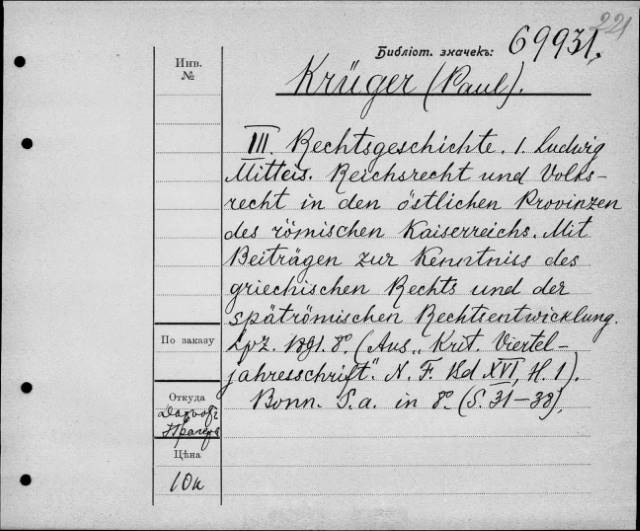 221
Библіот. значекъ: 69931,
Инв.
№
Krüger (Paul).
III. Rechtsgeschichte. 1. Ludwig
Mitteis. Reichsrecht und Volks-
recht in den östlichen Provinzen
des römischen Kaiserreichs. Mit
Beiträgen zur Kenntniss des
griechischen Rechts und der
spätrömischen Rechtsentwicklung.
Lpz. 1891. 8º. (Aus „Krit. Viertel-
jahresschrift". N. F. Bd XVI, H. 1).
Bonn. S. a. in 8º. (S. 31-38),
По заказу
Откуда
Цѣна
10к